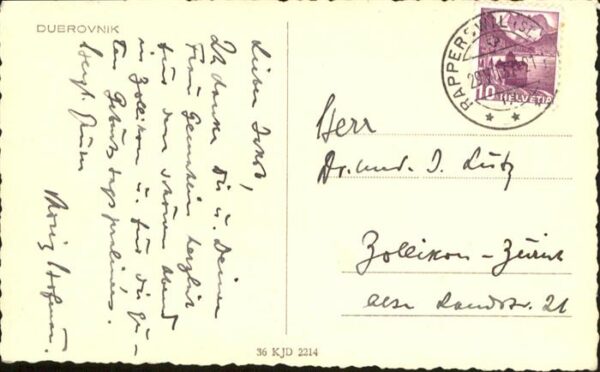 DUBROVNIK
Lieber Jakob,
Ich danke Dir u. Deiner
Frau Gemahlin herzlich
für den schönen Abend
in Zollikon u. für die
Geburtstags
herzl. Grüsse
RAPPERSWIL
10 HELVETIA
Herr
Dr. med. J. Lutz
Zollikon - Zürich
alte Landstr. 21
36 KJD 2214